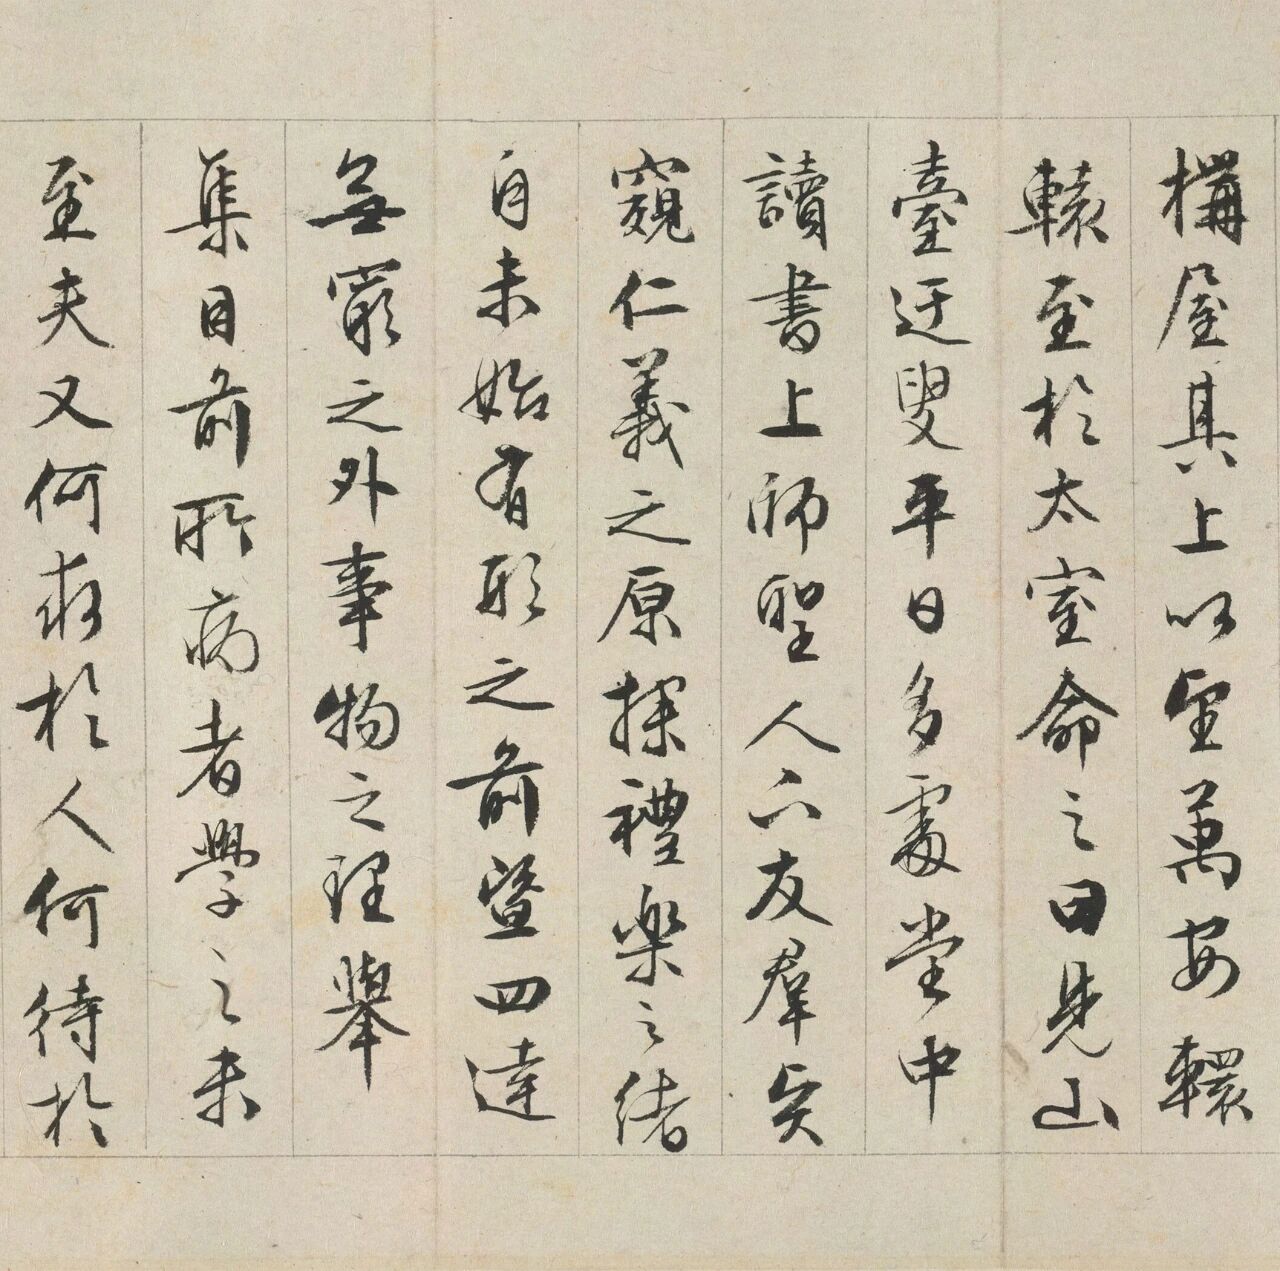 構屋其上以望萬安轘
轅至於太室命之曰見山
臺迂叟平日多處堂中
讀書上師聖人下友羣賢
窺仁義之原探禮樂之緒
自未始有形之前暨四達
無窮之外事物之理舉
集目前所病者學之未
至夫又何求於人何待於